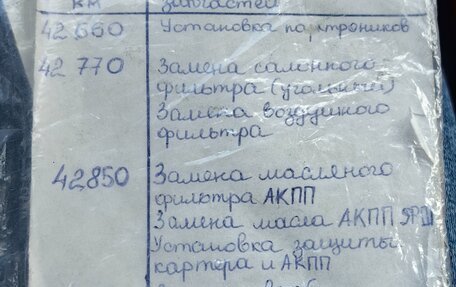 км запчастей
42 660 Установка парктроников
42 770 Замена салонного
фильтра (угольный)
Замена воздушного
фильтра
42850 Замена масляного
фильтра АКПП
Замена масла АКПП
Установка защиты
картера и АКПП